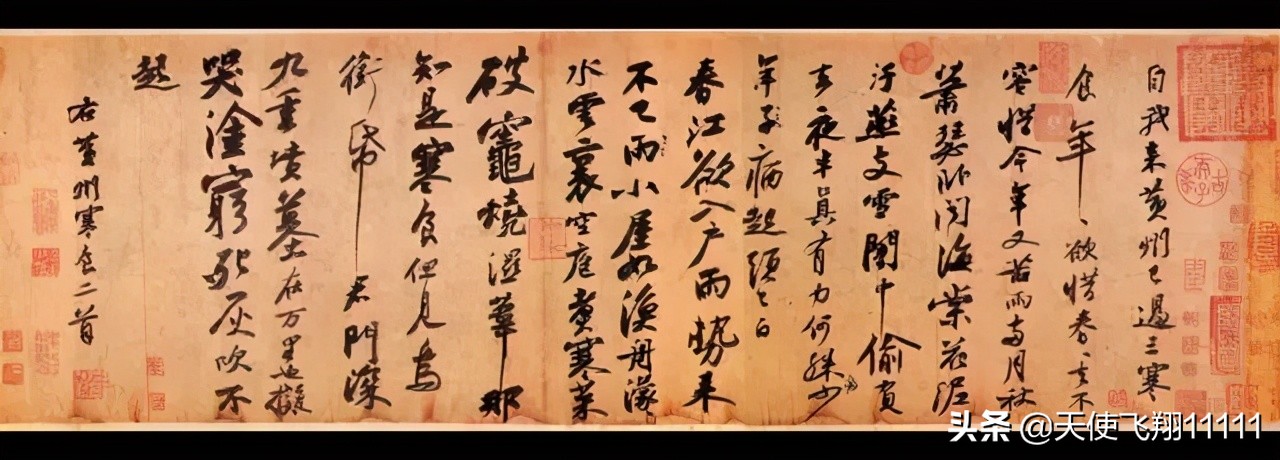 自我来黄州已過三寒
食年〻欲惜春〻去不
容惜今年又苦雨兩月秋
蕭瑟卧聞海棠花泥
汙燕支雪闇中偷負
去夜半真有力何殊少
年子病起頭已白
春江欲入户雨勢来
不已雨小屋如漁舟濛〻
水雲裏空庖煮寒菜
破竈燒濕葦那
知是寒食但見烏
銜帋君門深
九重墳墓在万里也擬
哭塗窮死灰吹不
起
右黄州寒食二首
头条 @天使飞翔11111